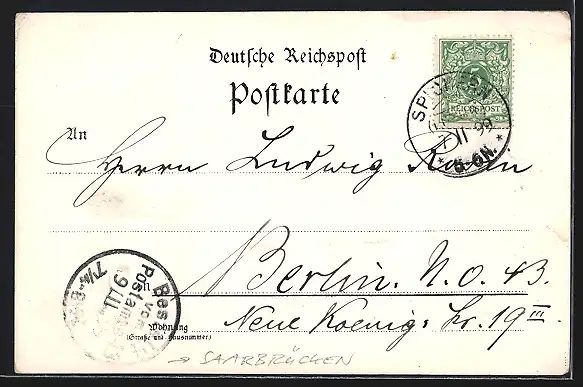 Deutsche Reichspost
Postkarte
An
Herrn Ludwig
REICHSPOST
5
7 11 99
* 5-6N. *
Berlin. N. O. 43.
Neue Koenig: Str. 19 III.
in
Wohnung
(Straße und Hausnummer)
Bes
v. Postamt
9 11
→ SAARBRÜCKEN